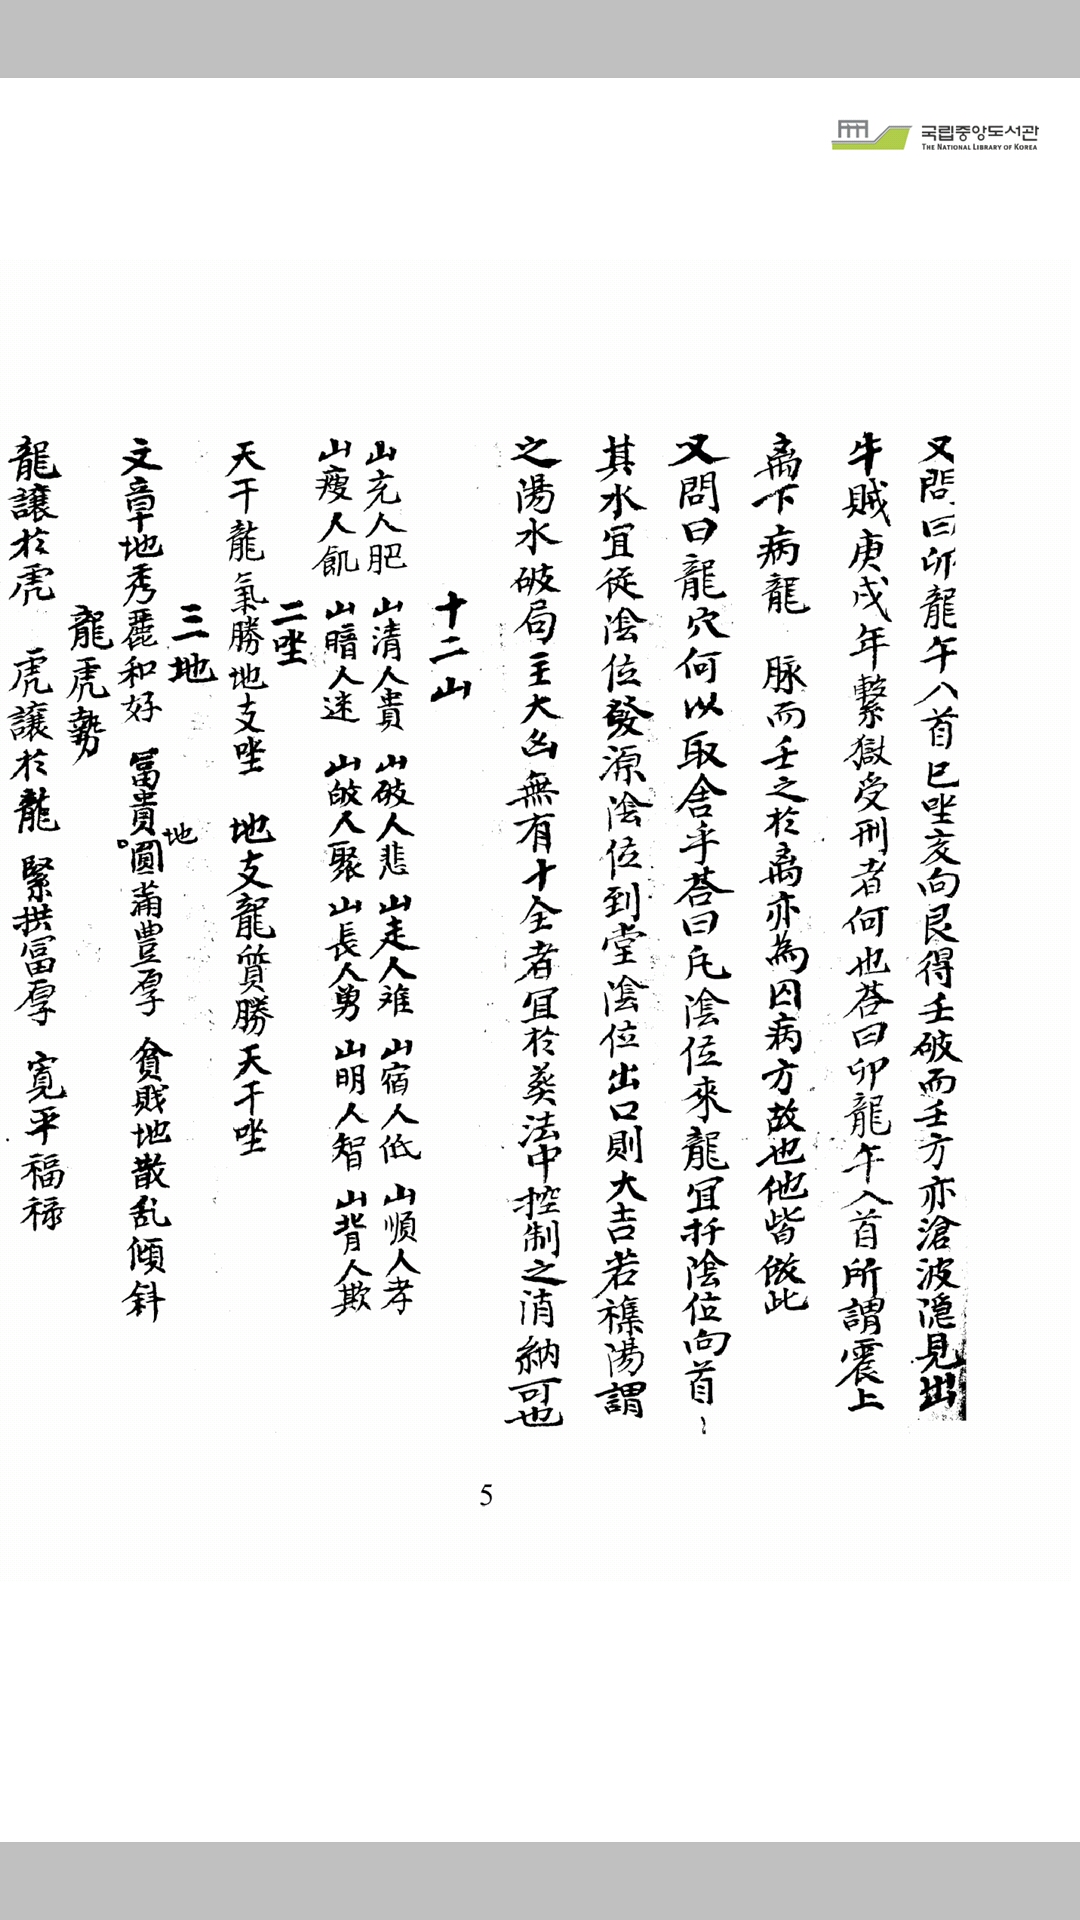 국립중앙도서관
THE NATIONAL LIBRARY OF KOREA
又問曰卯龍午入首巳坐亥向艮得壬破而壬方亦滄波隱見出
牛賊庚戌年繫獄受刑者何也荅曰卯龍午入首所謂震上
离下病龍 脉而壬之於离亦為囚病方故也他皆倣此
又問曰龍穴何以取舍乎荅曰凡陰位來龍宜扦陰位向首
其水宜從陰位發源陰位到堂陰位出口則大吉若襍陽謂
之陽水破局主大凶無有十全者宜於葬法中控制之消納可也
十二山
山充人肥 山清人貴 山破人悲 山走人难 山宿人低 山順人孝
山瘦人飢 山暗人迷 山故人聚 山長人勇 山明人智 山背人欺
二坐
天干龍氣勝地支坐 地支龍質勝天干坐
三地
文章地秀麗和好 冨貴地圓滿豊厚 貧賎地散乱傾斜
龍虎勢
龍讓於虎 虎讓於龍 緊拱冨厚 寬平福祿
5